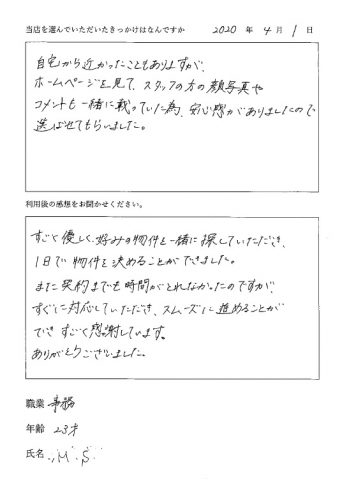 当店を選んでいただいたきっかけはなんですか 2020 年 4 月 1 日
自宅から近かったこともありますが、
ホームページを見て、スタッフの方の顔写真や
コメントも一緒に載っていた為、安心感がありましたので
選ばせてもらいました。
利用後の感想をお聞かせください。
すごく優しく、好みの物件を一緒に探していただき、
1日で物件を決めることができました。
また契約までも時間がとれなかったのですが、
すぐに対応していただき、スムーズに進めることが
でき すごく感謝しています。
ありがとうございました。
職業 事務
年齢 23才
氏名 M.S.